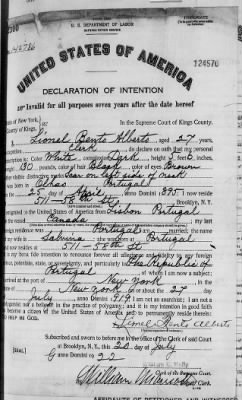 TRIPLICATE
U. S. DEPARTMENT OF LABOR
NATURALIZATION SERVICE
UNITED STATES OF AMERICA
124570
DECLARATION OF INTENTION
Invalid for all purposes seven years after the date hereof
State of New York,
County of Kings,
In the Supreme Court of Kings County.
I, Lionel Bento Alberto, aged 27 years,
occupation Clerk, do declare on oath that my personal
description is: Color White, complexion Dark, height 5 feet 6 inches,
weight 130 pounds, color of hair Black, color of eyes Brown
other visible distinctive marks Scar on left side of neck
I was born in Olhao Portugal
on the 25 day of April, anno Domini 1895; I now reside
at 511-58th St
I emigrated to the United States of America from Lisbon Portugal
on the vessel Canada; my last
foreign residence was Portugal
wife is Sabrina; she was born at Portugal
and now resides at 511-58th St
It is my bona fide intention to renounce forever all allegiance and fidelity to any foreign
prince, potentate, state, or sovereignty, and particularly to The Republic of
Portugal, of whom I am now a subject;
I arrived at the port of New York, in the
State of New York, on or about the 27 day
of July, anno Domini 1919; I am not an anarchist; I am not a
polygamist nor a believer in the practice of polygamy; and it is my intention in good faith
to become a citizen of the United States of America and to permanently reside therein:
SO HELP ME GOD.
Lionel Bento Alberto
Subscribed and sworn to before me in the office of the Clerk of said Court
at Brooklyn, N. Y., this 20 day of July
anno Domini 1922
[SEAL]
Clerk of the Supreme Court.
Clerk.
AFFIDAVITS OF PETITIONER AND WITNESSES